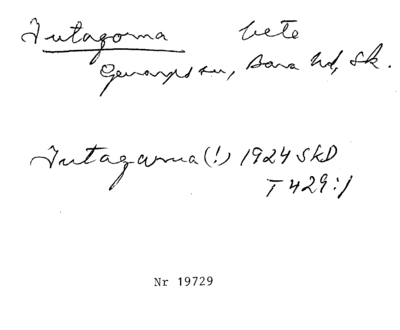 Tutagorna bete
Genarps sn, Bara hd, Sk.
Tutagarna (!) 1924 SkD
T 429:1
Nr 19729